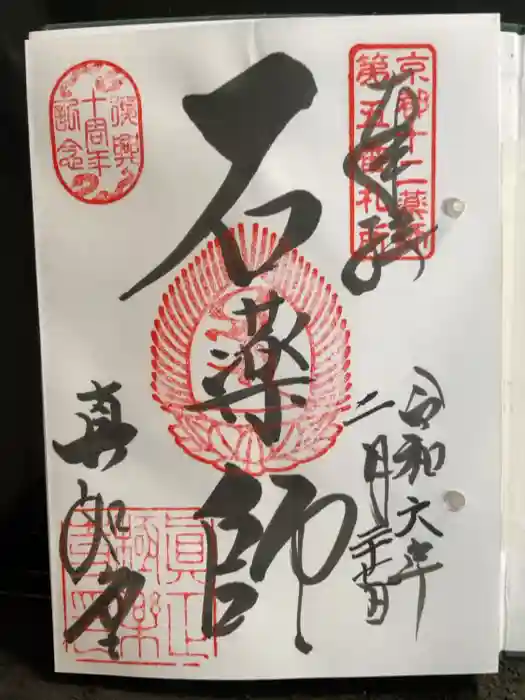 京都十二薬師
第五番札所
奉拝
石薬師
復興
十周年
記念
令和六年
二月二十七日
真如堂
眞正
極樂
寺印